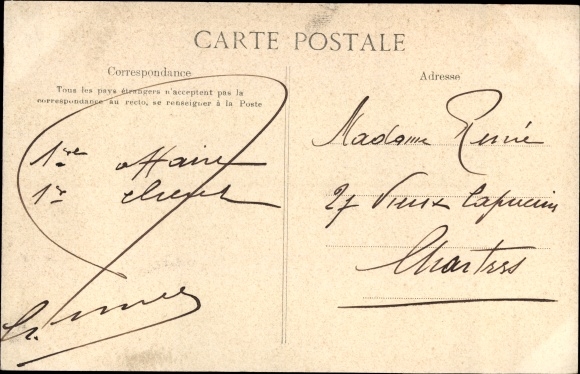 CARTE POSTALE
Correspondance
Tous les pays étrangers n'acceptent pas la
correspondance au recto, se renseigner à la Poste
1ère affaire
1er client
Adresse
Madame René
27 Vieux Capucins
Chartres